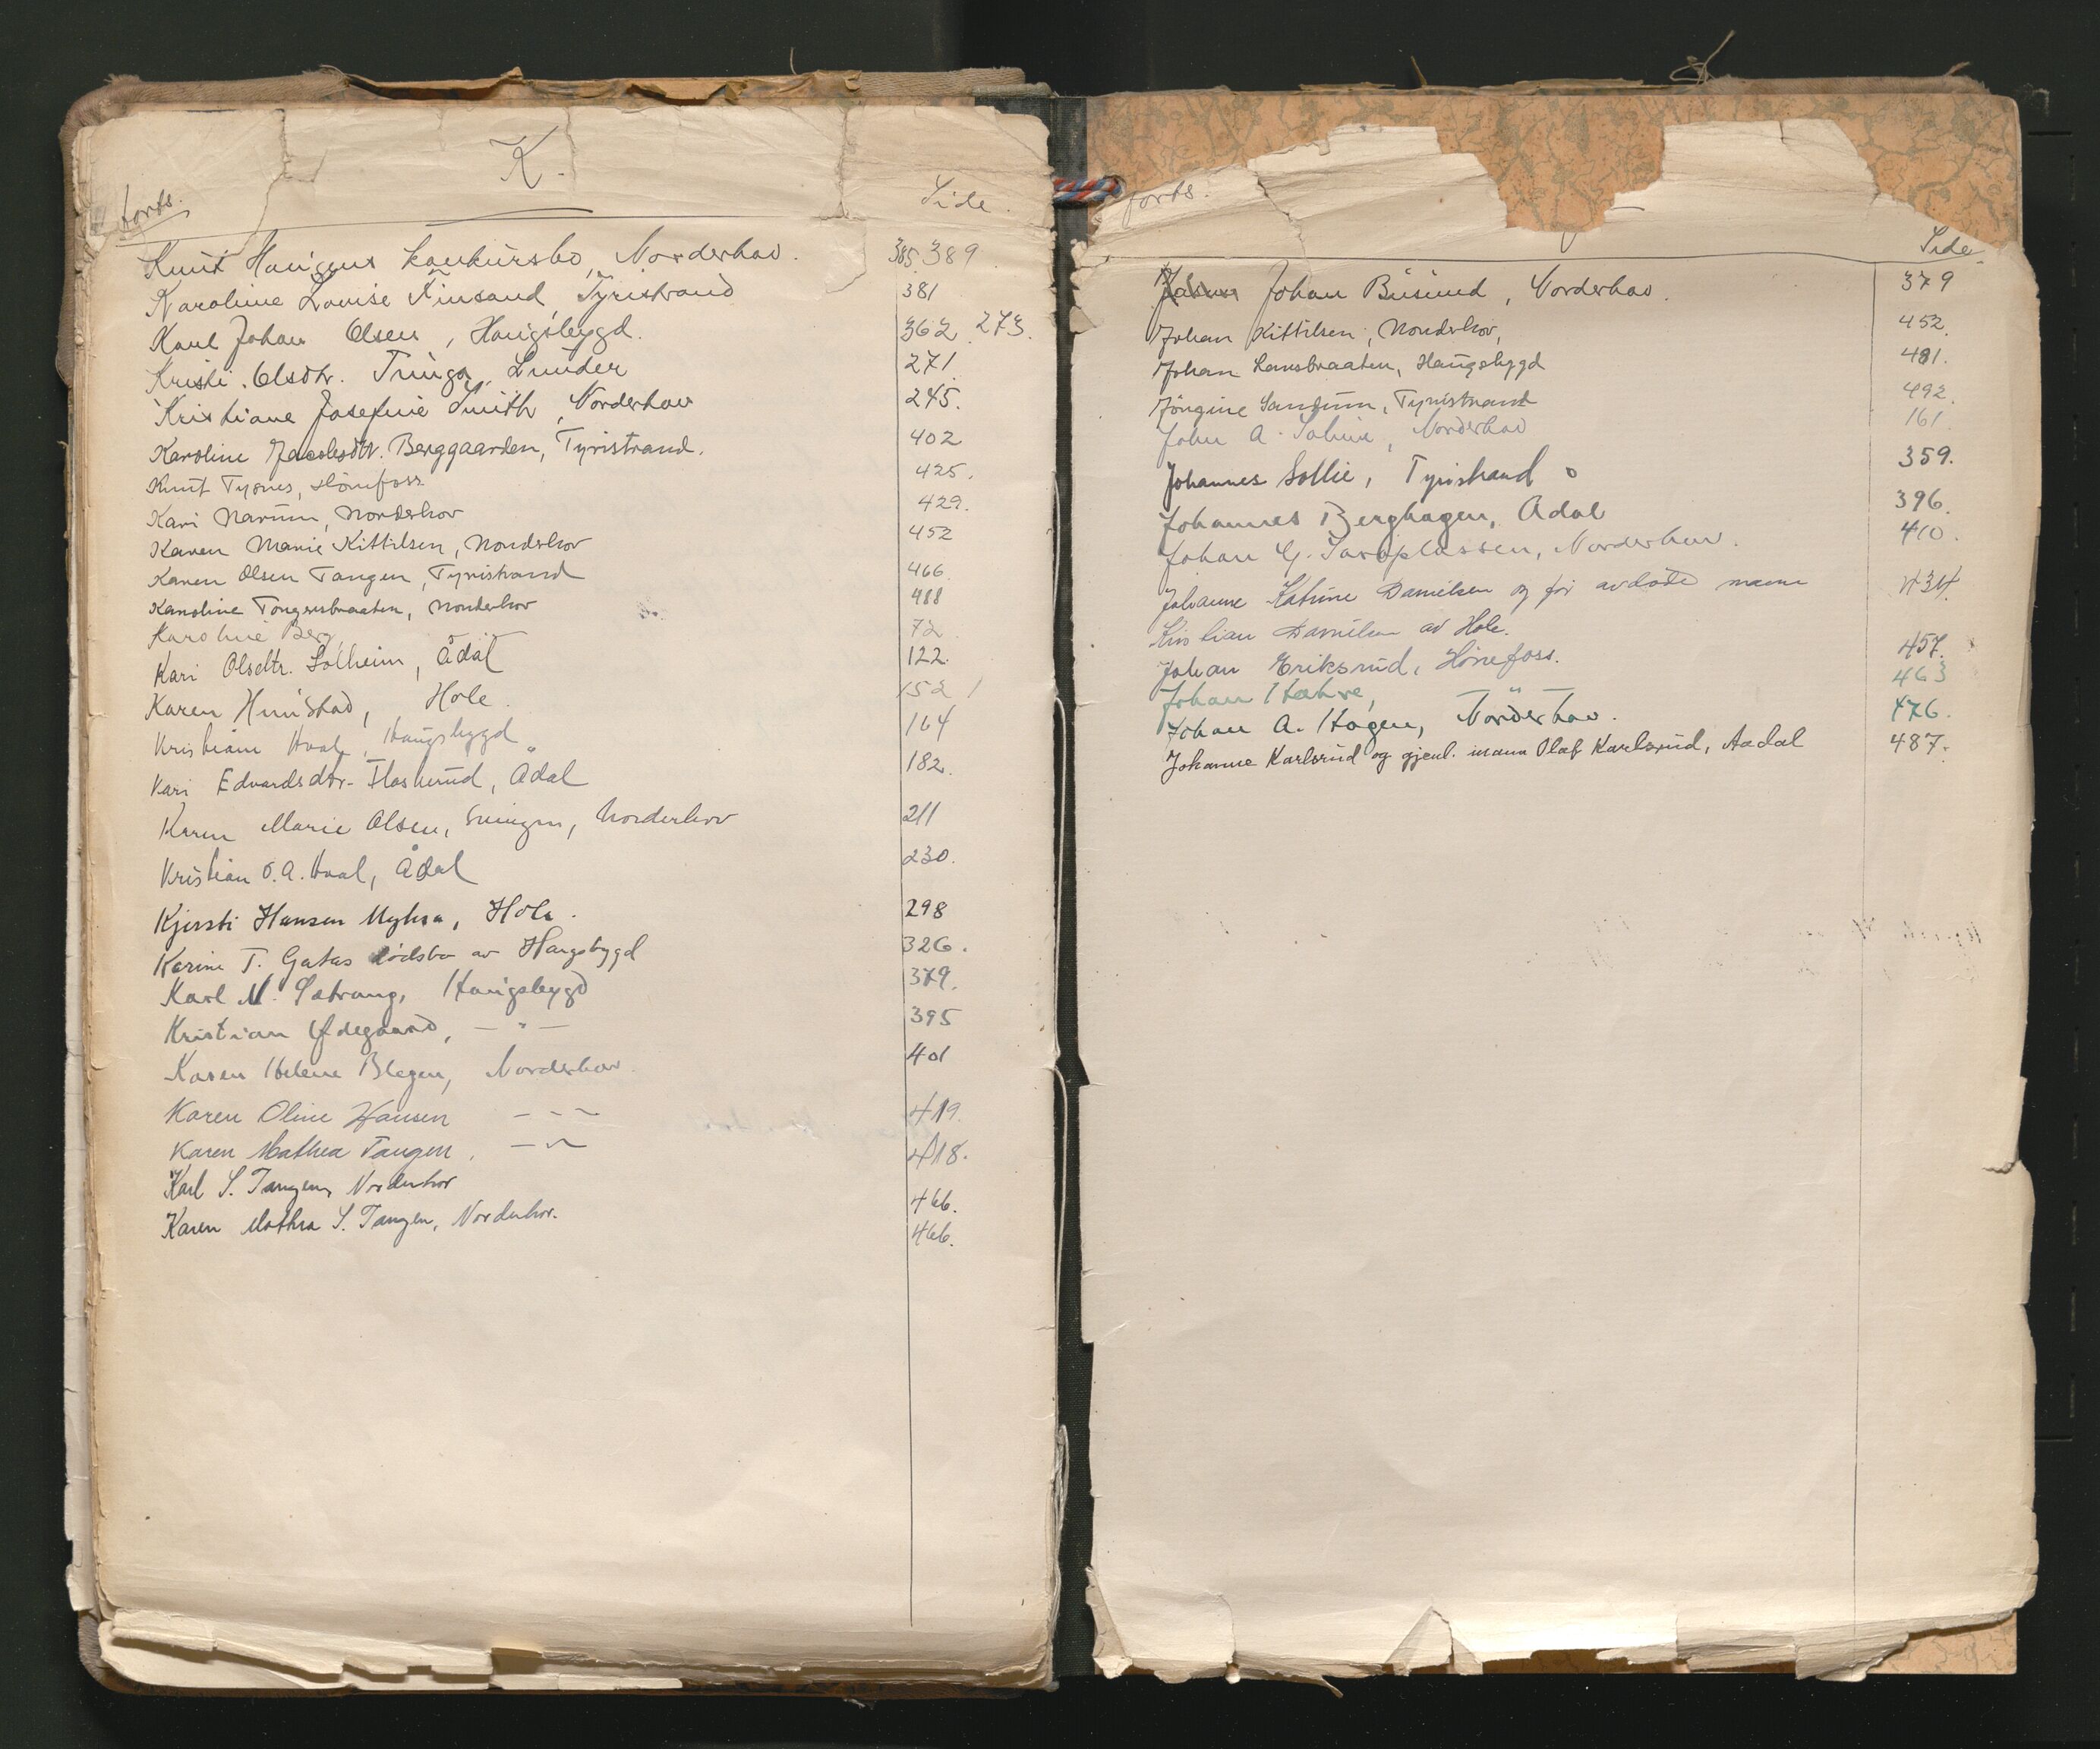 K.
forts.
Side.
Knut Haugens konkursbo, Norderhov. 385, 389.
Karoline Lovise Finsand, Tyristrand 381
Karl Johan Olsen, Haugsbygd. 362. 273.
Kristi Olsdtr. Tunga, Lunder 271.
Kristiane Josefine Smith, Norderhov 245.
Karoline Jacobsdtr. Berggaarden, Tyristrand. 402
Knut Tyrnes, Hönefoss 425.
Kari Narum, Norderhov 429.
Karen Marie Kittilsen, Norderhov 452
Karen Olsen Tangen, Tyristrand 466
Karoline Tongersbraaten, Norderhov 488
Karoline Berg 72
Kari Olsdtr. Solheim, Ådal 122.
Karen Hunstad, Hole. 152
Kristian Hval, Haugsbygd 164
Kari Edvardsdtr. Flaskerud, Ådal 182.
Karen Marie Olsen, Svingen, Norderhov 211
Kristian O. A. Hval, Ådal 230.
Kjersti Hansen Myhra, Hole. 298
Karine T. Gatas dödsbo av Haugsbygd 326.
Karl M. Sætrang, Haugsbygd 379.
Kristian Ødegaard, — " — 395
Karen Helene Blegen, Norderhov. 401
Karen Oline Hansen — " — 419.
Karen Mathea Tangen, — " — 418.
Karl S. Tangen, Norderhov 466.
Karen Mathea S. Tangen, Norderhov. 466.
forts.
Side
Johan Busund, Norderhov. 379
Johan Kittilsen, Norderhov, 452.
Johan Lansbraaten, Haugsbygd 481.
Jörgine Sandum, Tyristrand 492.
John A. Sohne, Norderhov 161
Johannes Sollie, Tyristrand 359.
Johannes Berghagen, Ådal 396.
Johan G. Svarvplassen, Norderhov. 410.
Johanne Katrine Danielsen og for avdöde mann 434.
Kristian Danielsen av Hole.
Johan Eriksrud, Hönefoss. 457.
Johan Hæhre, — " — 463
Johan A. Hagen, Norderhov. 476.
Johanne Karlsrud og gjenl. mann Olaf Karlsrud, Aadal 487.